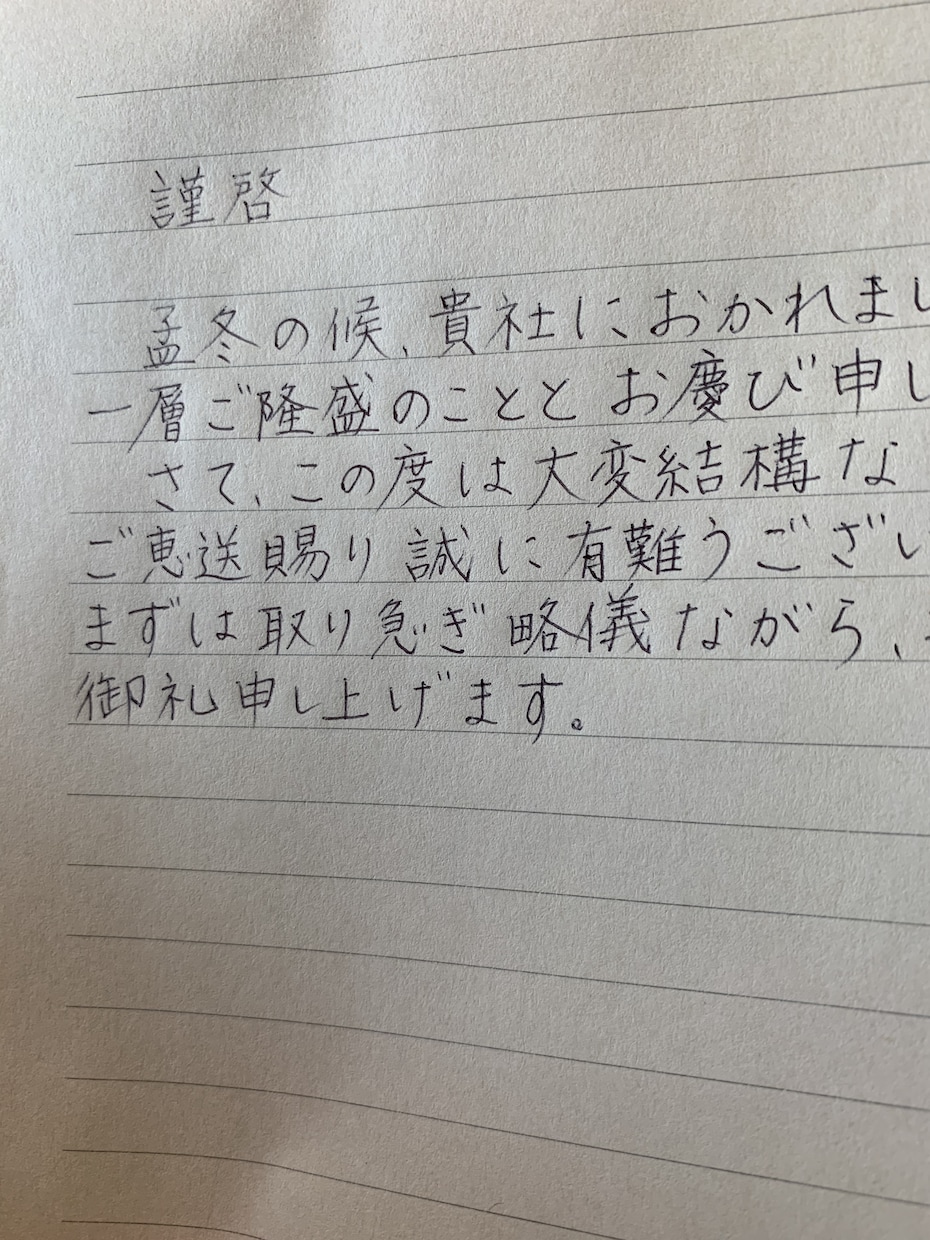 謹啓
孟冬の候、貴社におかれまし
一層ご隆盛のことと お慶び申し
さて、この度は大変結構な
ご恵送賜り 誠に有難うござい
まずは取り急ぎ 略儀ながら、
御礼申し上げます。